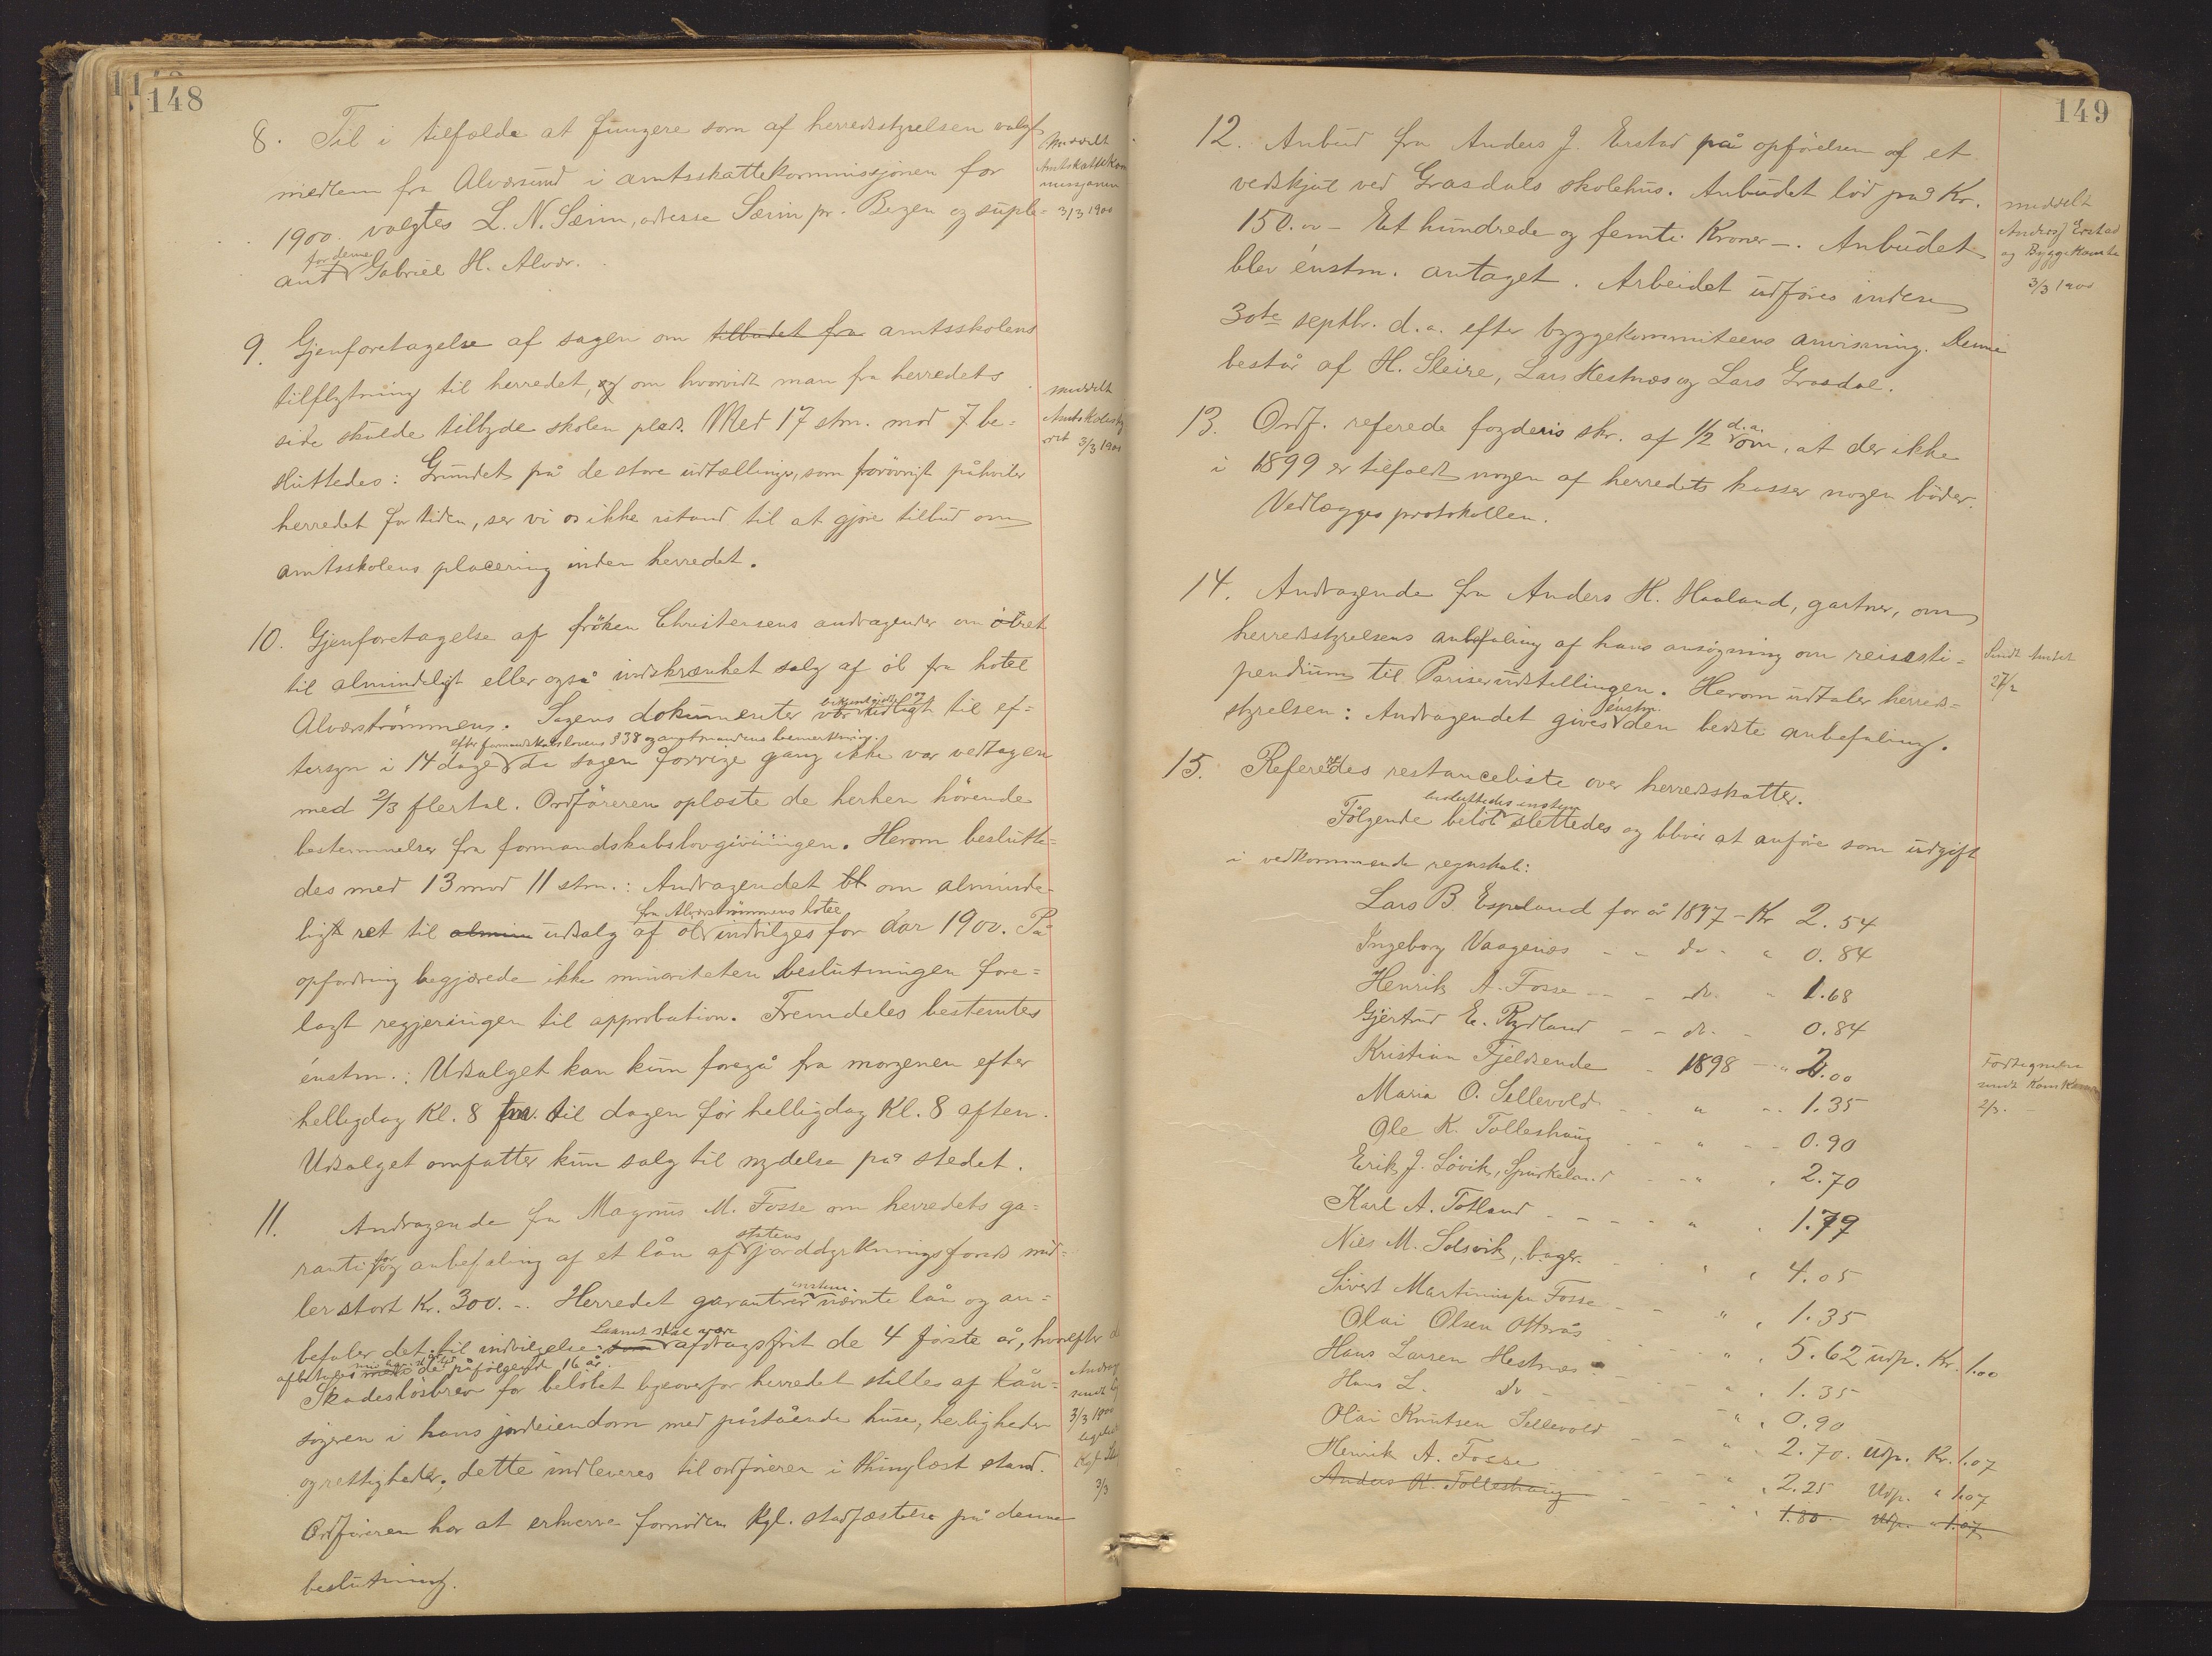 148
8. Til i tilfælde at fungere som af herredsstyrelsen valgt
medlem fra Alværsund i amtsskattekommissjonen for
1900. valgtes L. N. Særim, adresse Særim pr. Bergen og suple=
ant for denne Gabriel H. Alvær.
Meddelt
Amtskattekom
missjonen
3/3 1900
9. Gjenforetagelse af sagen om tilbudet fra amtsskolens
tilflytning til herredet, og om hvorvidt man fra herredets
side skulde tilbyde skolen plads. Med 17 stm. mod 7 be=
sluttedes: Grundet på de store udtællinger, som forøvrigt påhviler
herredet for tiden, ser vi os ikke istand til at gjøre tilbud om
amtsskolens placering inden herredet.
meddelt
Amtskolesty
ret 3/3 1900
10. Gjenforetagelse af frøken Christensens andragender om ølret
til almindeligt eller også indskrænket salg af øl fra hotel
Alværstrømmens. Sagens dokumenter var bekjendtgjort udlagt til ef=
tersyn i 14 dage efter formandskabslovens § 38 og amtmandens bemerkning. da sagen forrige gang ikke var vedtagen
med 2/3 flertal. Ordføreren oplæste de herhen hørende
bestemmelser fra formandskabslovgivningen. Herom beslutte=
des med 13 mod 11 stm.: Andragendet bl om alminde-
ligt ret til almin udsalg af øl fra Alværstrømmens hotel indvilges for år 1900. På
opfordring begjærede ikke minoriteten beslutningen fore=
lagt regjeringen til approbation. Fremdeles bestemtes
énstm.: Udsalget kan kun foregå fra morgenen efter
helligdag Kl. 8 fm. til dagen før helligdag Kl. 8 aften.
Udsalget omfatter kun salg til nydelse på stedet.
11. Andragende fra Magnus M. Fosse om herredets ga=
ranti for og anbefaling af et lån af statens jorddyrkningsfonds mid=
ler stort Kr. 300.-. Herredet garanterer enstm. nævnte lån og an=
befaler det til indvilgelse. Laanet skal være som afdragsfrit de 4 første år, hvorefter d
afbetales med de påfølgende 16 år.
Skadesløsbrev for beløbet ligeoverfor herredet stilles af lån=
søgeren i hans jordeiendom med påstående huse, herligheder
og rettigheder, dette indleveres til ordføreren i thinglæst stand.
Ordføreren har at erhverve fornøden Kgl. stadfæstelse på denne
beslutning.
Andrag
sendt
3/3 1900
3/3
149
12. Anbud fra Anders J. Erstad på opførelsen af et
vedskjul ved Grasdals skolehus. Anbudet lød på Kr.
150.00 - Et hundrede og femti Kroner -. Anbudet
blev énstm. antaget. Arbeidet udføres inden
30te septbr. d.a. efter byggekommiteens anvisning. Denne
består af H. Sleire, Lars Hestnæs og Lars Grasdal.
meddelt
Anders J Erstad
og Byggekomite
3/3 1900
13. Ordf. referede fogderis skr. af 1/2 d.a. om, at der ikke
i 1899 er tilfaldt nogen af herredets kasser nogen bøder.
Vedlægges protokollen.
14. Andragende fra Anders H. Haaland, gartner, om
herredsstyrelsens anbefaling af hans ansøgning om reisesti=
pendium til Pariserudstillingen. Herom udtaler herreds=
styrelsen: Andragendet gives énstm. den bedste anbefaling.
Sendt Amtet
27/2
15. Refereredes restanceliste over herredsskatter.
Følgende beløb besluttedes enstem slettedes og bliver at anføre som udgift
i vedkommende regnskab:
Lars B. Espeland for år 1897 - Kr 2.54
Ingeborg Vaagenæs - - do - " 0.84
Henrik A. Fosse - - - do. - 1.68
Gjertrud E. Rydland - - do. - 0.84
Kristian Fjeldsende - 1898 - " 2.00
Maria O. Sellevold - - " - - 1.35
Ole K. Tolleshaug - - " - - 0.90
Erik J. Løvik, Spurkeland - - " " 2.70
Karl A. Totland - - - - " " 1.79
Nils M. Solsvik, bager - " " 4.05
Sivert Martinussen Fosse - - " " 1.35
Olai Olsen Otterås - - " " 5.62 udp. Kr. 1.00
Hans Larsen Hestnes - - - " " 1.35
Hans L. do - - " " 0.90
Olai Knutsen Sellevold - - " " 2.70. Udp. Kr. 1.07
Henrik A. Fosse - - - - " " 2.25 Udp. " 1.07
Anders K. Tolleshaug - - - " " 1.80 Udp. " 1.07
Fortegnelse
sendt Kom Kas
2/3. -